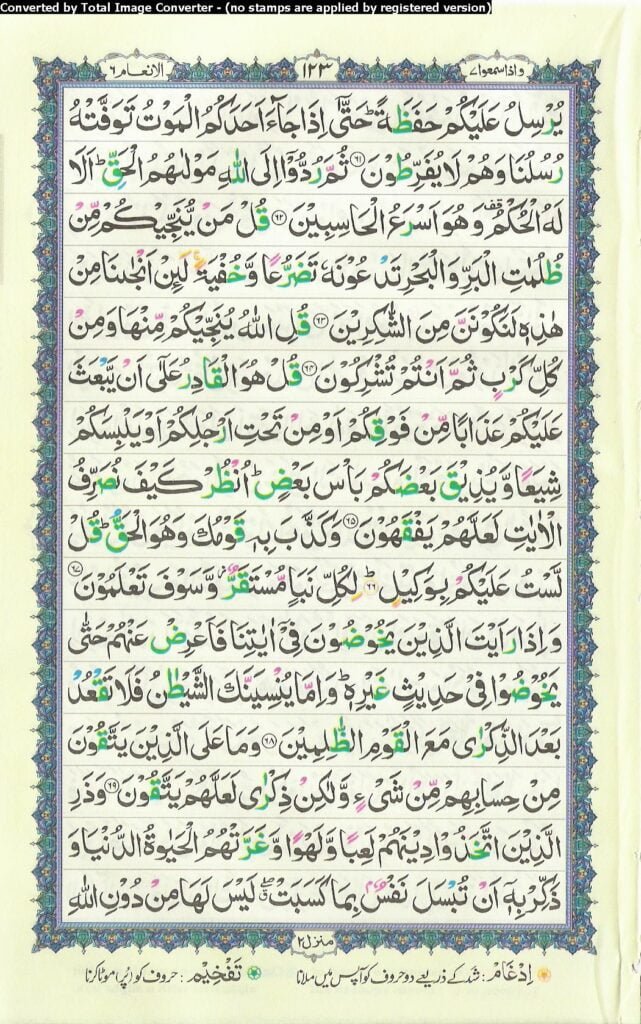 Converted by Total Image Converter - (no stamps are applied by registered version)
واذا سمعوا ٧
١٢٣
الانعام ٦
يُرْسِلُ عَلَيْكُمْ حَفَظَةً ؕ حَتّٰۤى اِذَا جَآءَ اَحَدَكُمُ الْمَوْتُ تَوَفَّتْهُ
رُسُلُنَا وَهُمْ لَا يُفَرِّطُوْنَ ﴿۶۱﴾ ثُمَّ رُدُّوْۤا اِلَى اللّٰهِ مَوْلٰىهُمُ الْحَقِّ ؕ اَلَا
لَهُ الْحُكْمُ ۟ وَهُوَ اَسْرَعُ الْحَاسِبِيْنَ ﴿۶۲﴾ قُلْ مَنْ يُّنَجِّيْكُمْ مِّنْ
ظُلُمٰتِ الْبَرِّ وَالْبَحْرِ تَدْعُوْنَهٗ تَضَرُّعًا وَّخُفْيَةً ۚ لَئِنْ اَنْجٰىنَا مِنْ
هٰذِهٖ لَنَكُوْنَنَّ مِنَ الشّٰكِرِيْنَ ﴿۶۳﴾ قُلِ اللّٰهُ يُنَجِّيْكُمْ مِّنْهَا وَمِنْ
كُلِّ كَرْبٍ ثُمَّ اَنْتُمْ تُشْرِكُوْنَ ﴿۶۴﴾ قُلْ هُوَ الْقَادِرُ عَلٰۤى اَنْ يَّبْعَثَ
عَلَيْكُمْ عَذَابًا مِّنْ فَوْقِكُمْ اَوْ مِنْ تَحْتِ اَرْجُلِكُمْ اَوْ يَلْبِسَكُمْ
شِيَعًا وَّيُذِيْقَ بَعْضَكُمْ بَاْسَ بَعْضٍ ؕ اُنْظُرْ كَيْفَ نُصَرِّفُ
الْاٰيٰتِ لَعَلَّهُمْ يَفْقَهُوْنَ ﴿۶۵﴾ وَكَذَّبَ بِهٖ قَوْمُكَ وَهُوَ الْحَقُّ ؕ قُلْ
لَّسْتُ عَلَيْكُمْ بِوَكِيْلٍ ؕ ﴿۶۶﴾ لِكُلِّ نَبَاٍ مُّسْتَقَرٌّ ؗ وَّسَوْفَ تَعْلَمُوْنَ ﴿۶۷﴾
وَاِذَا رَاَيْتَ الَّذِيْنَ يَخُوْضُوْنَ فِيْۤ اٰيٰتِنَا فَاَعْرِضْ عَنْهُمْ حَتّٰى
يَخُوْضُوْا فِيْ حَدِيْثٍ غَيْرِهٖ ؕ وَاِمَّا يُنْسِيَنَّكَ الشَّيْطٰنُ فَلَا تَقْعُدْ
بَعْدَ الذِّكْرٰى مَعَ الْقَوْمِ الظّٰلِمِيْنَ ﴿۶۸﴾ وَمَا عَلَى الَّذِيْنَ يَتَّقُوْنَ
مِنْ حِسَابِهِمْ مِّنْ شَيْءٍ وَّلٰكِنْ ذِكْرٰى لَعَلَّهُمْ يَتَّقُوْنَ ﴿۶۹﴾ وَذَرِ
الَّذِيْنَ اتَّخَذُوْا دِيْنَهُمْ لَعِبًا وَّلَهْوًا وَّغَرَّتْهُمُ الْحَيٰوةُ الدُّنْيَا وَ
ذَكِّرْ بِهٖۤ اَنْ تُبْسَلَ نَفْسٌۢ بِمَا كَسَبَتْ ۖ لَيْسَ لَهَا مِنْ دُوْنِ اللّٰهِ
منزل ٢
اِدْغَامْ: شد کے ذریعے دو حروف کو آپس میں ملانا تَفْخِیْم: حروف کو پُر، موٹا کرنا